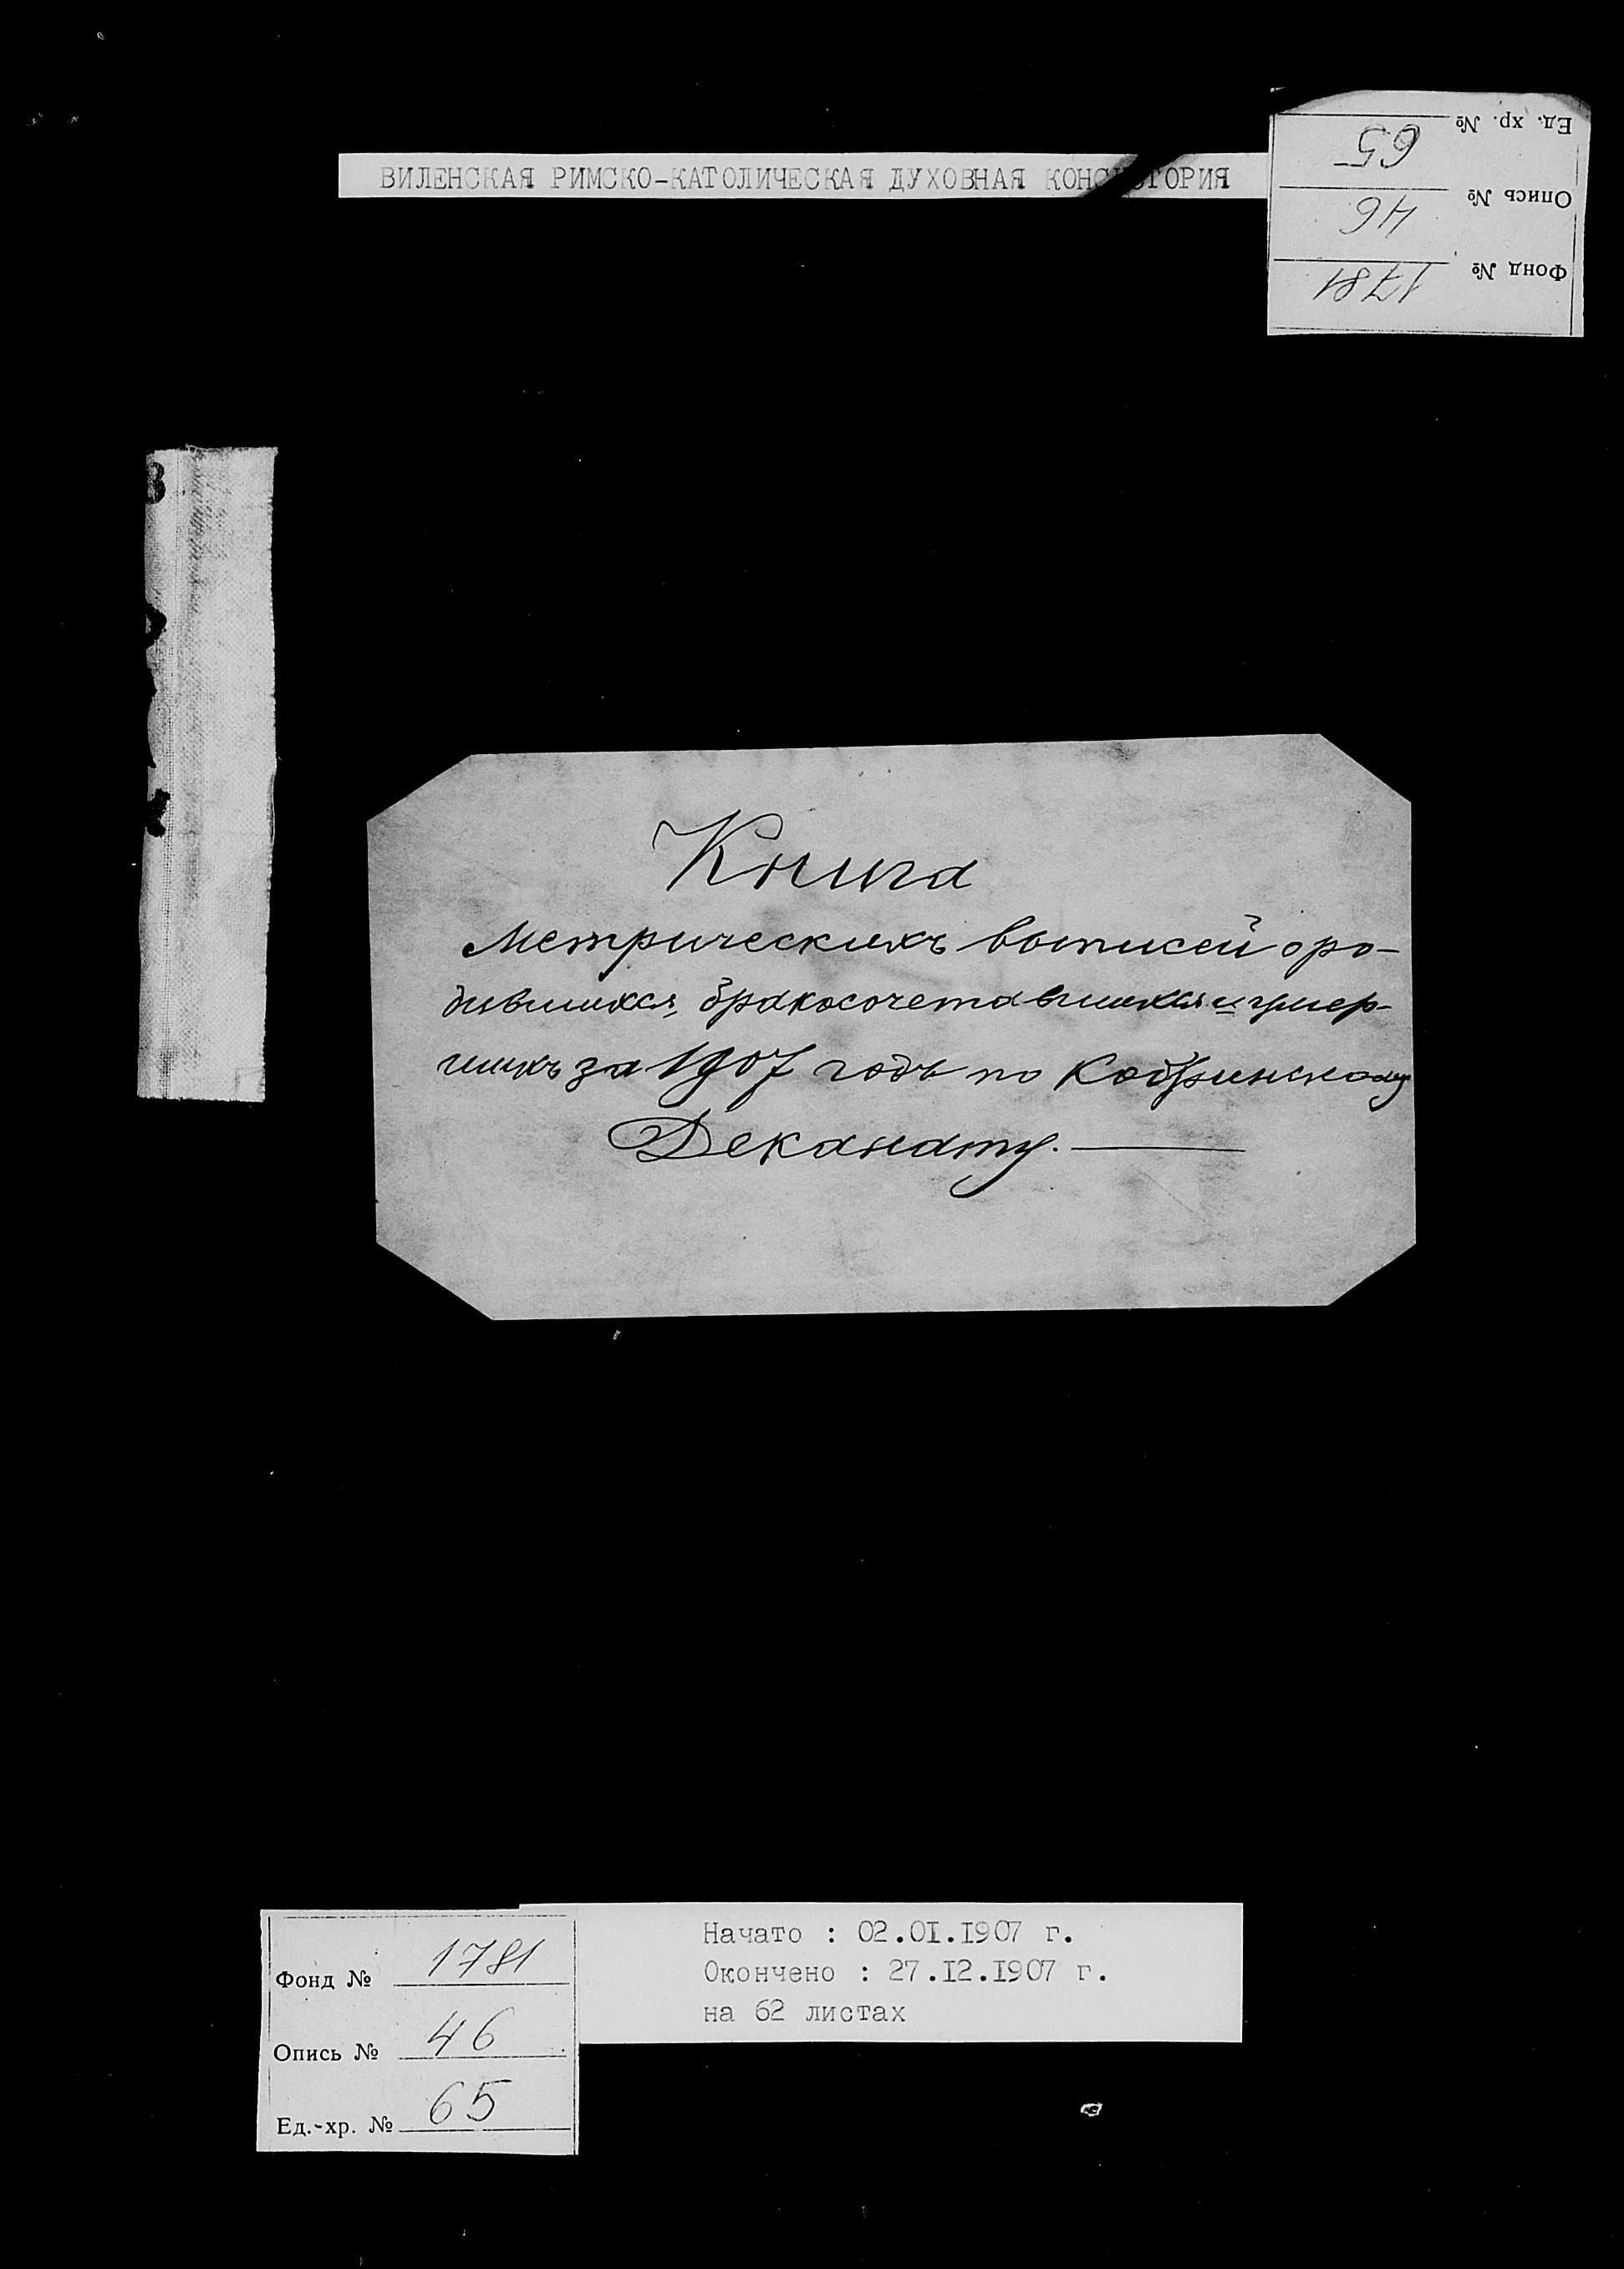 ВИЛЕНСКАЯ РИМСКО-КАТОЛИЧЕСКАЯ ДУХОВНАЯ КОНСИСТОРИЯ
Фонд № 1781
Опись № 46
Ед. хр. № 65
Книга
Метрическихъ выписей оро-
дившихся, бракосочетавшихся и умер-
шихъ за 1907 годъ по Кобринскому
Деканату.
Начато : 02.01.1907 г.
Окончено : 27.12.1907 г.
на 62 листах
Фонд № 1781
Опись № 46
Ед.-хр. № 65